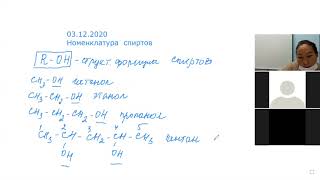 03.12.2020
Номенклатура спиртов
R-OH - структ. формула спиртов
CH₃-OH метанол
CH₃-CH₂-OH этанол
CH₃-CH₂-CH₂-OH пропанол
1 2 3 4 5
CH₃-CH-CH₂-CH-CH₃ пентан
OH OH